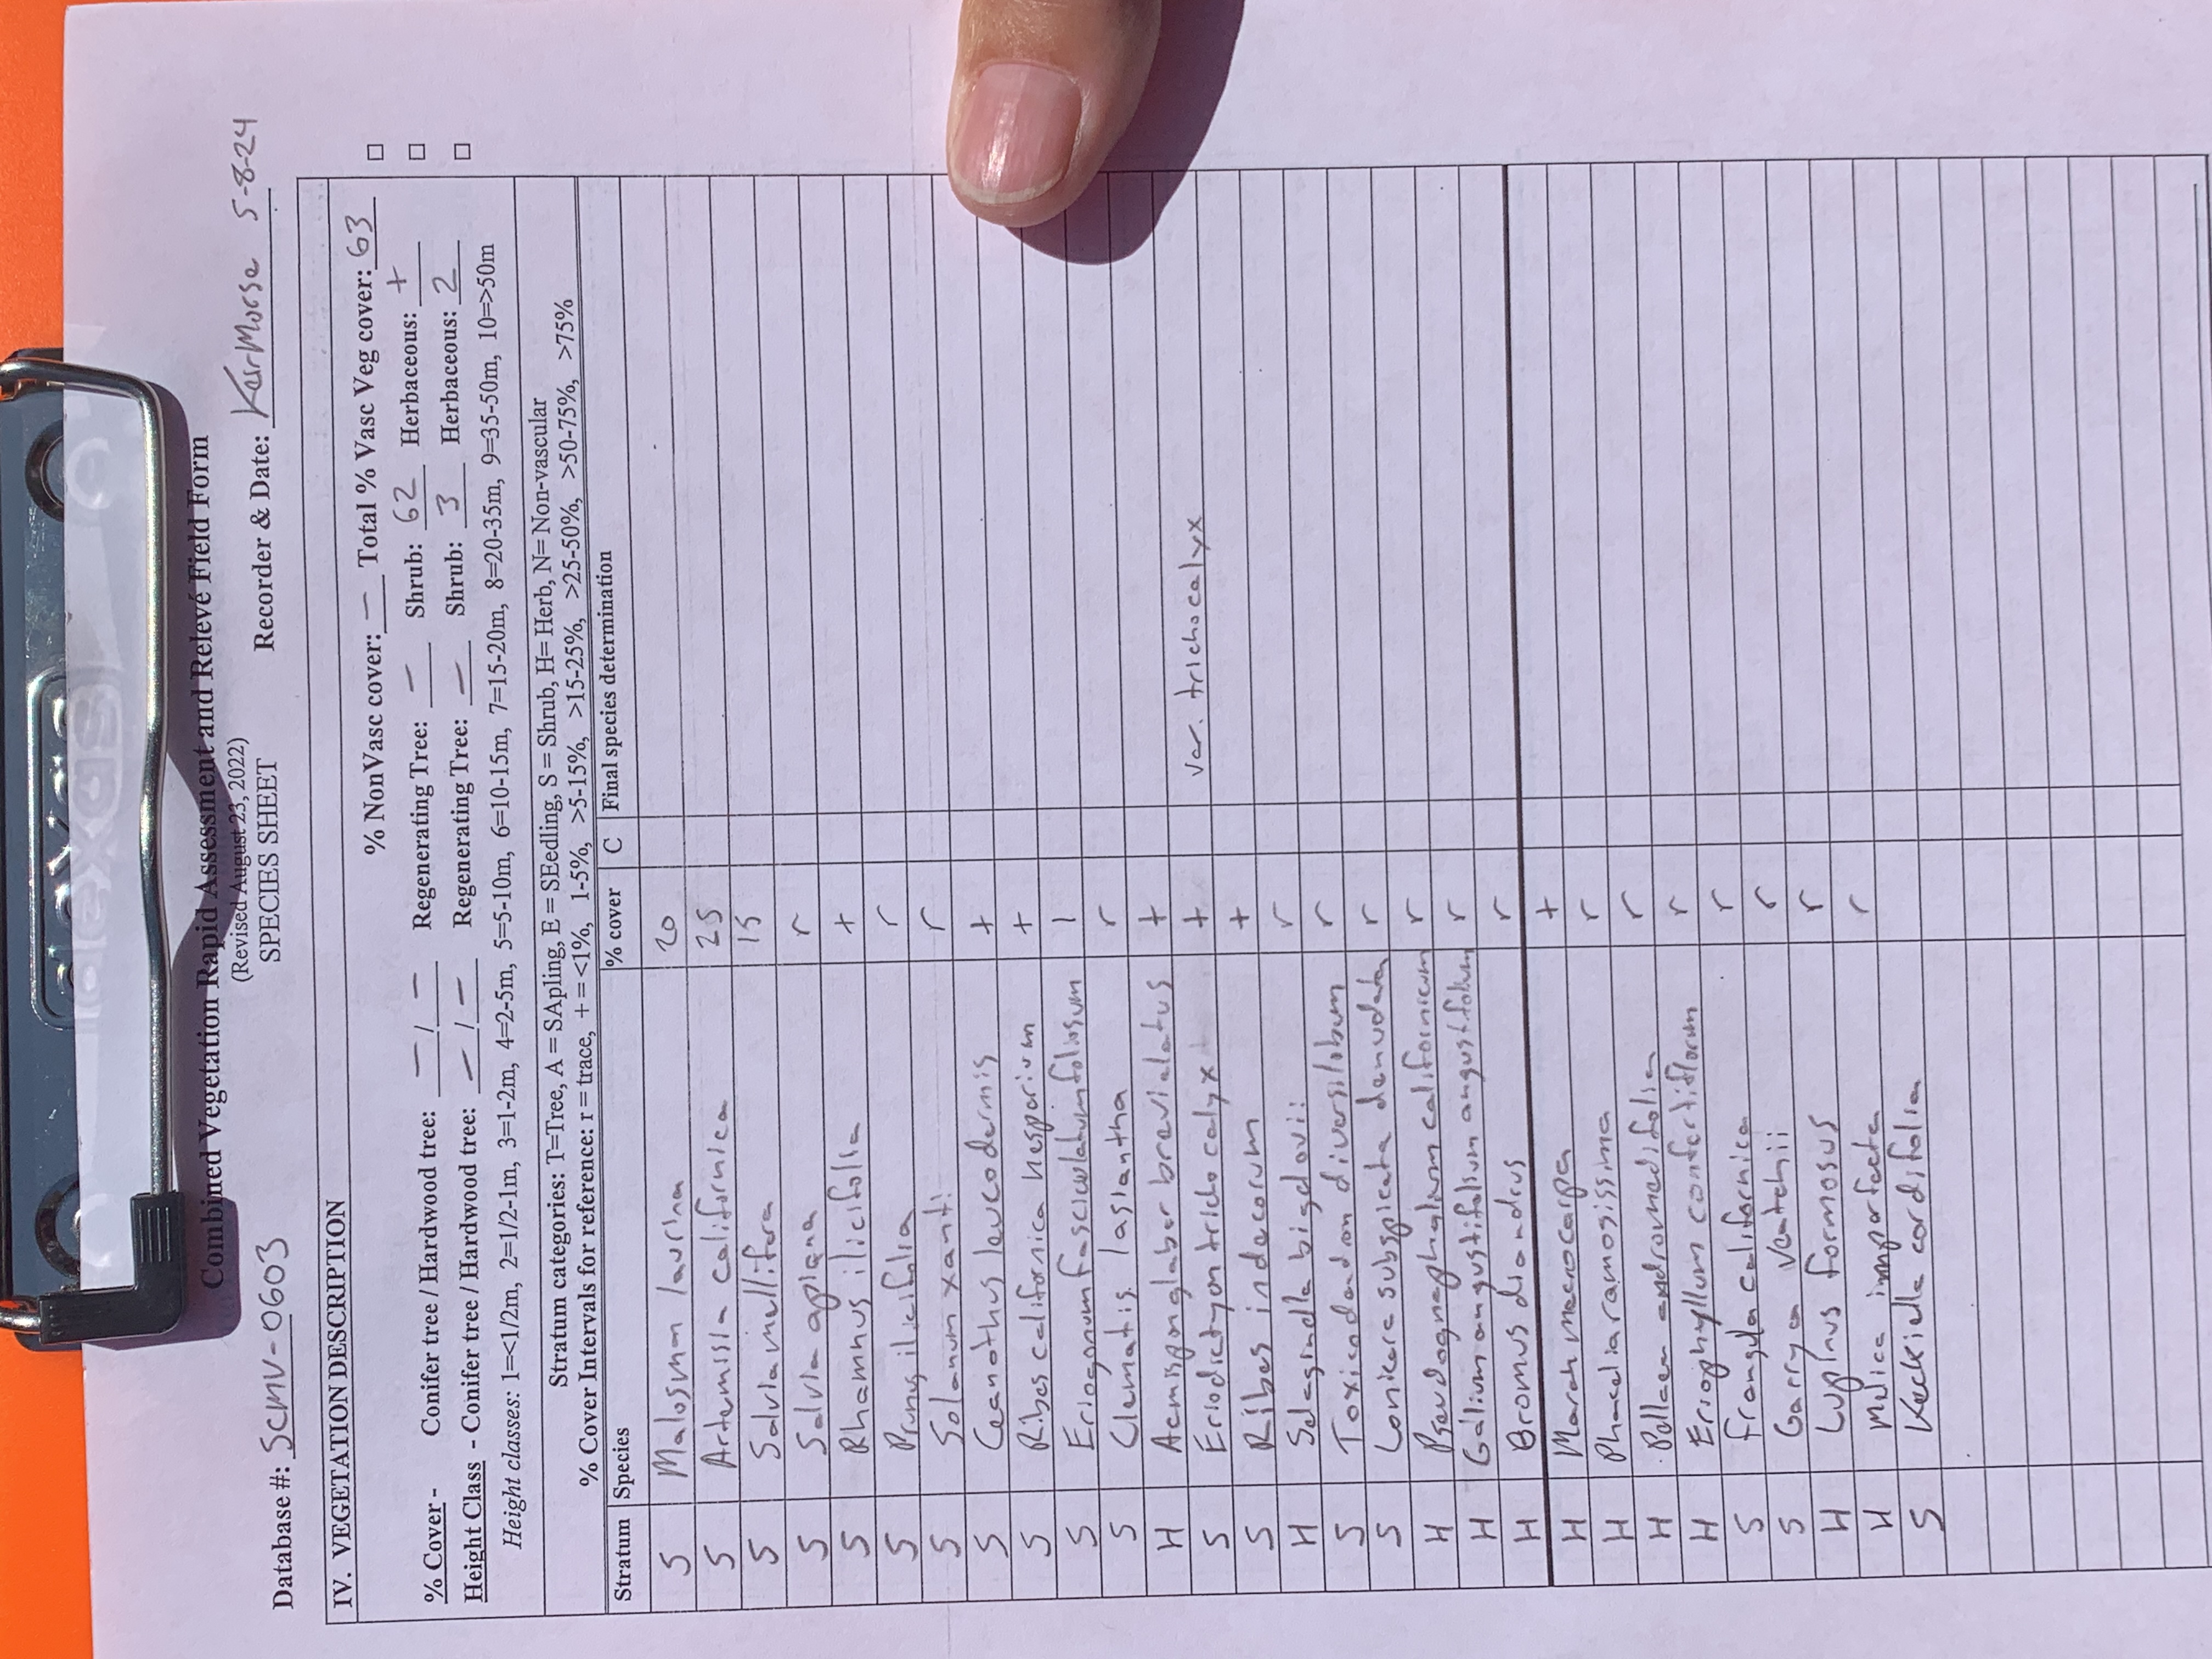 dexas
Combined Vegetation Rapid Assessment and Relevé Field Form
(Revised August 23, 2022)
SPECIES SHEET
Database #: SCMV-0603 Recorder & Date: Keir Morse 5-8-24
IV. VEGETATION DESCRIPTION
% NonVasc cover: — Total % Vasc Veg cover: 63 □
% Cover - Conifer tree / Hardwood tree: — / — Regenerating Tree: — Shrub: 62 Herbaceous: + □
Height Class - Conifer tree / Hardwood tree: — / — Regenerating Tree: — Shrub: 3 Herbaceous: 2 □
Height classes: 1=<1/2m, 2=1/2-1m, 3=1-2m, 4=2-5m, 5=5-10m, 6=10-15m, 7=15-20m, 8=20-35m, 9=35-50m, 10=>50m
Stratum categories: T=Tree, A = SApling, E = SEedling, S = Shrub, H= Herb, N= Non-vascular
% Cover Intervals for reference: r = trace, + = <1%, 1-5%, >5-15%, >15-25%, >25-50%, >50-75%, >75%
Stratum Species % cover C Final species determination
S Malosma laurina 20
S Artemisia californica 25
S Salvia mellifera 15
S Salvia apiana r
S Rhamnus ilicifolia +
S Prunus ilicifolia r
S Solanum xanti r
S Ceanothus leucodermis +
S Ribes californica hesperium +
S Eriogonum fasciculatum foliosum 1
S Clematis lasiantha r
H Acmispon glaber brevialatus +
S Eriodictyon trichocalyx + var. trichocalyx
S Ribes indecorum +
H Selaginella bigelovii r
S Toxicodendron diversilobum r
S Lonicera subspicata denudata r
H Pseudognaphalium californicum r
H Galium angustifolium angustifolium r
H Bromus diandrus r
H Marah macrocarpa +
H Phacelia ramosissima r
H Pellaea andromedifolia r
H Eriophyllum confertiflorum r
S Frangula californica r
S Garrya veatchii r
H Lupinus formosus r
H Melica imperfecta r
S Keckiella cordifolia